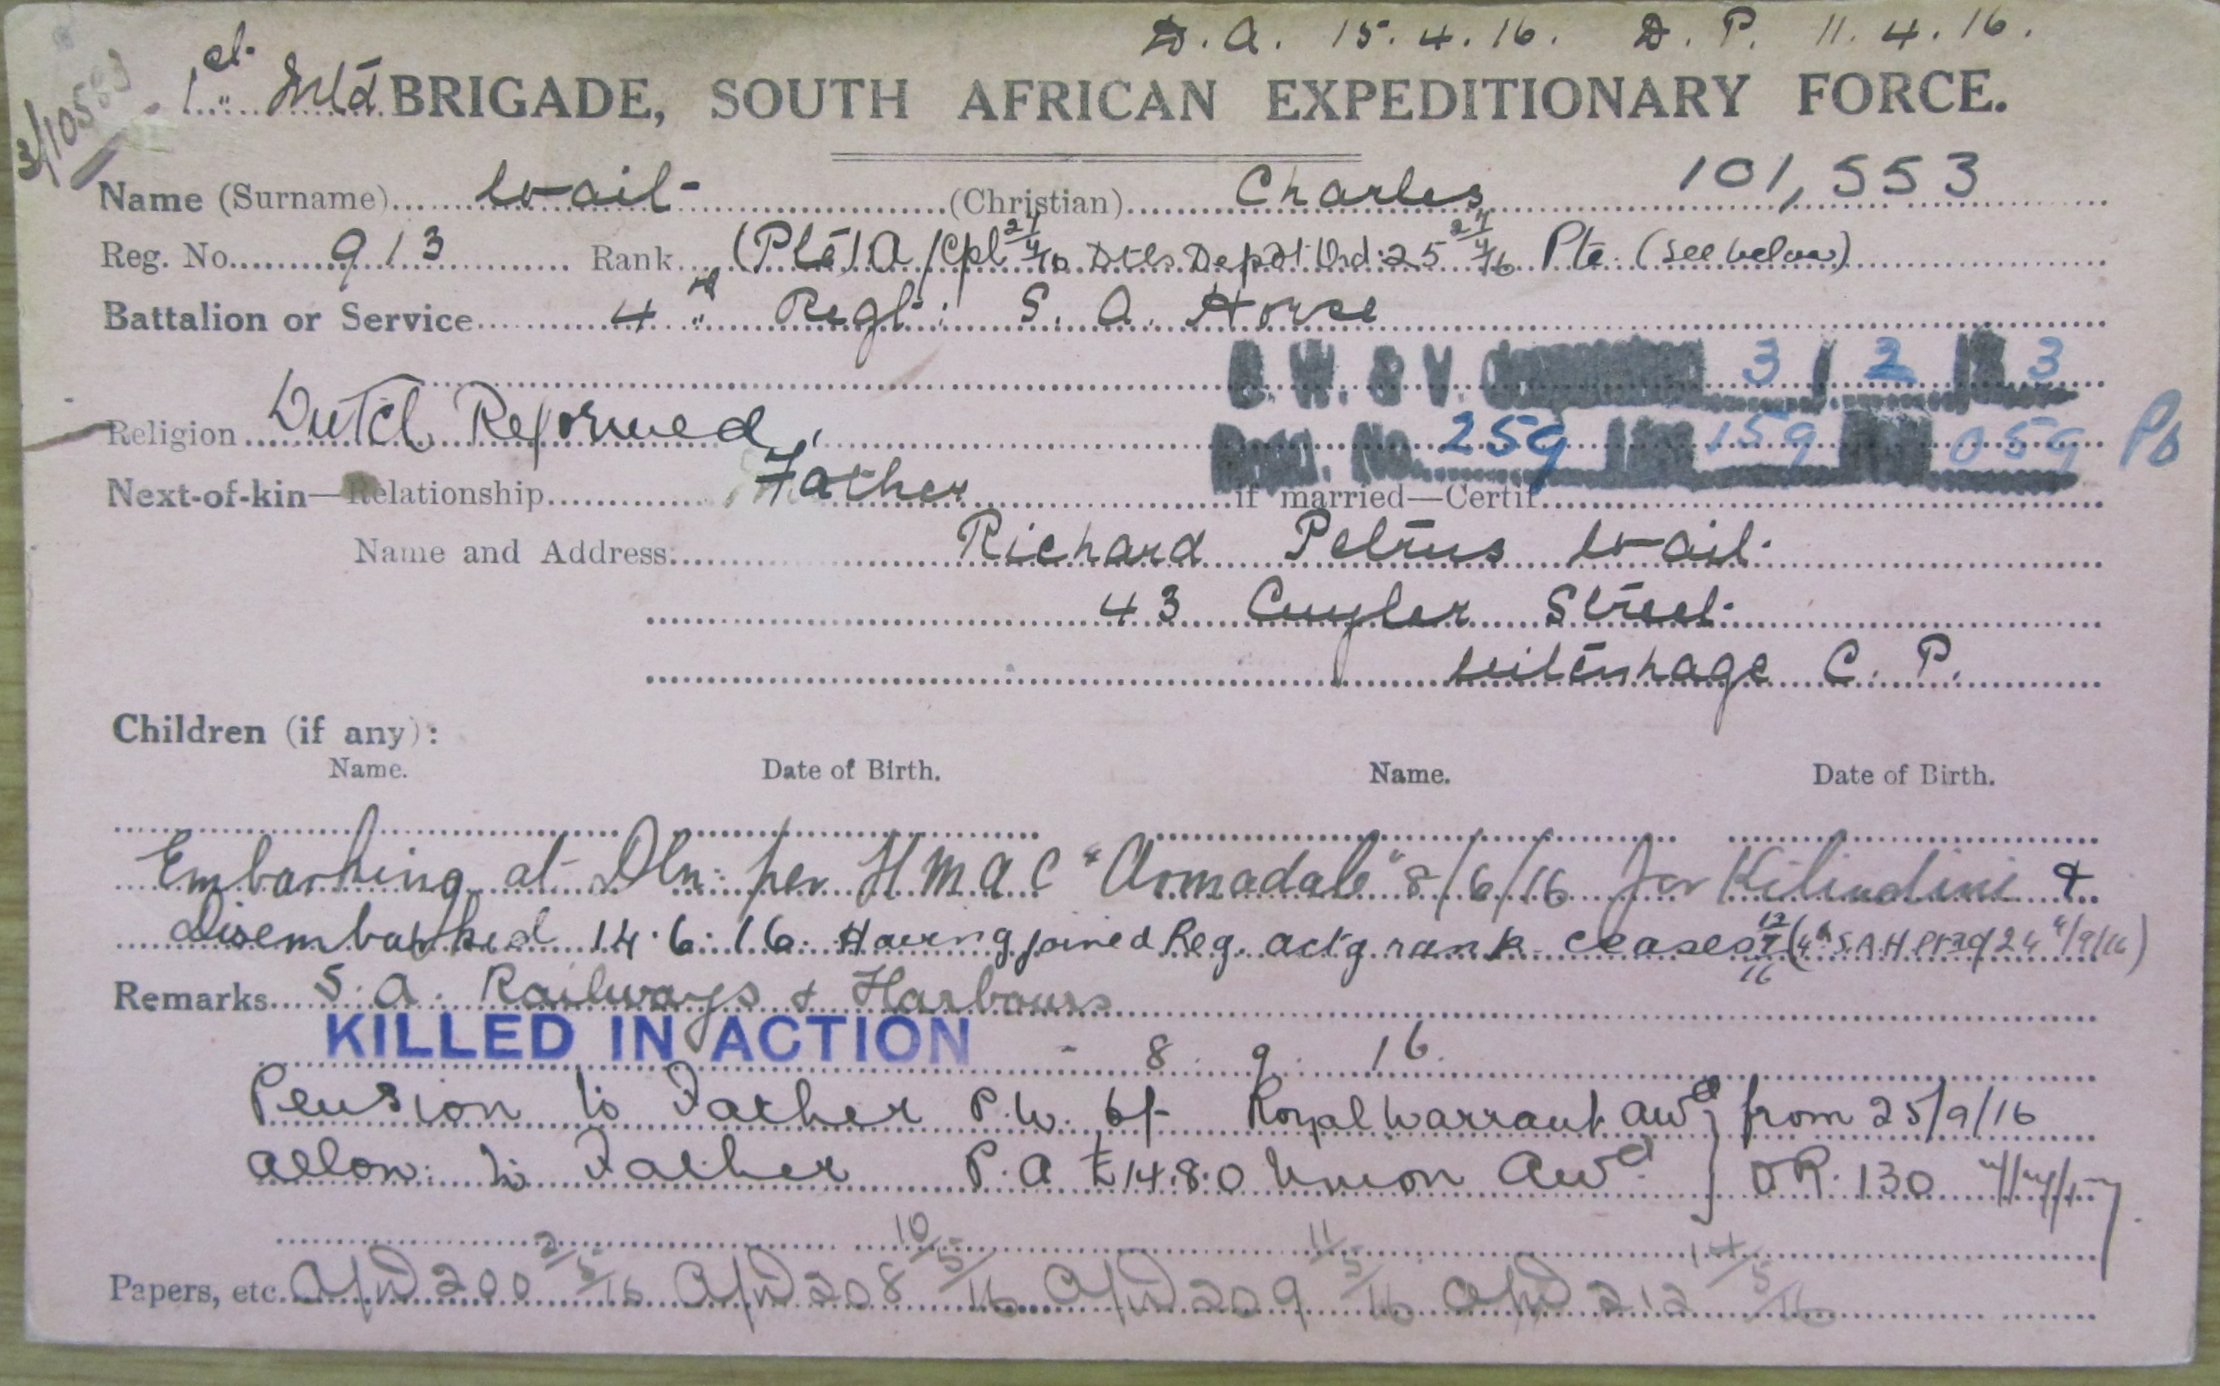 D. A. 15. 4. 16. D. P. 11. 4. 16.
1st Mtd BRIGADE, SOUTH AFRICAN EXPEDITIONARY FORCE.
Name (Surname) Wait (Christian) Charles 101,553
Reg. No. 913 Rank (Pte) A/Cpl Dtls Depot Ord: 25 Pte. (see below)
Battalion or Service 4th Regt: S. A. Horse
B. W. & V. 3 / 2 / 3
Religion Dutch Reformed,
Road. No. 259 159 059 Po
Next-of-kin—Relationship Father if married—Certif.
Name and Address: Richard Petrus Wait.
43 Cuyler Street
Uitenhage C. P.
Children (if any):
Name. Date of Birth. Name. Date of Birth.
Embarking at Dbn: per H M A C "Armadale" 8/6/16 for Kilindini &
Disembarked 14.6.16. Having joined Reg. actg rank ceases (4th S.A.H.
Remarks S. A. Railways & Harbours
KILLED IN ACTION - 8. 9. 16.
Pension to Father P.W. 6/- Royal Warrant Awd } from 25/9/16
Allow: to Father P.A £14.8.0 Union Awd. } OR. 130
Papers, etc. A/W 200 2/5/16 A/W 208 10/5/16 A/W 209 11/5/16 A/W 212 14/5/16